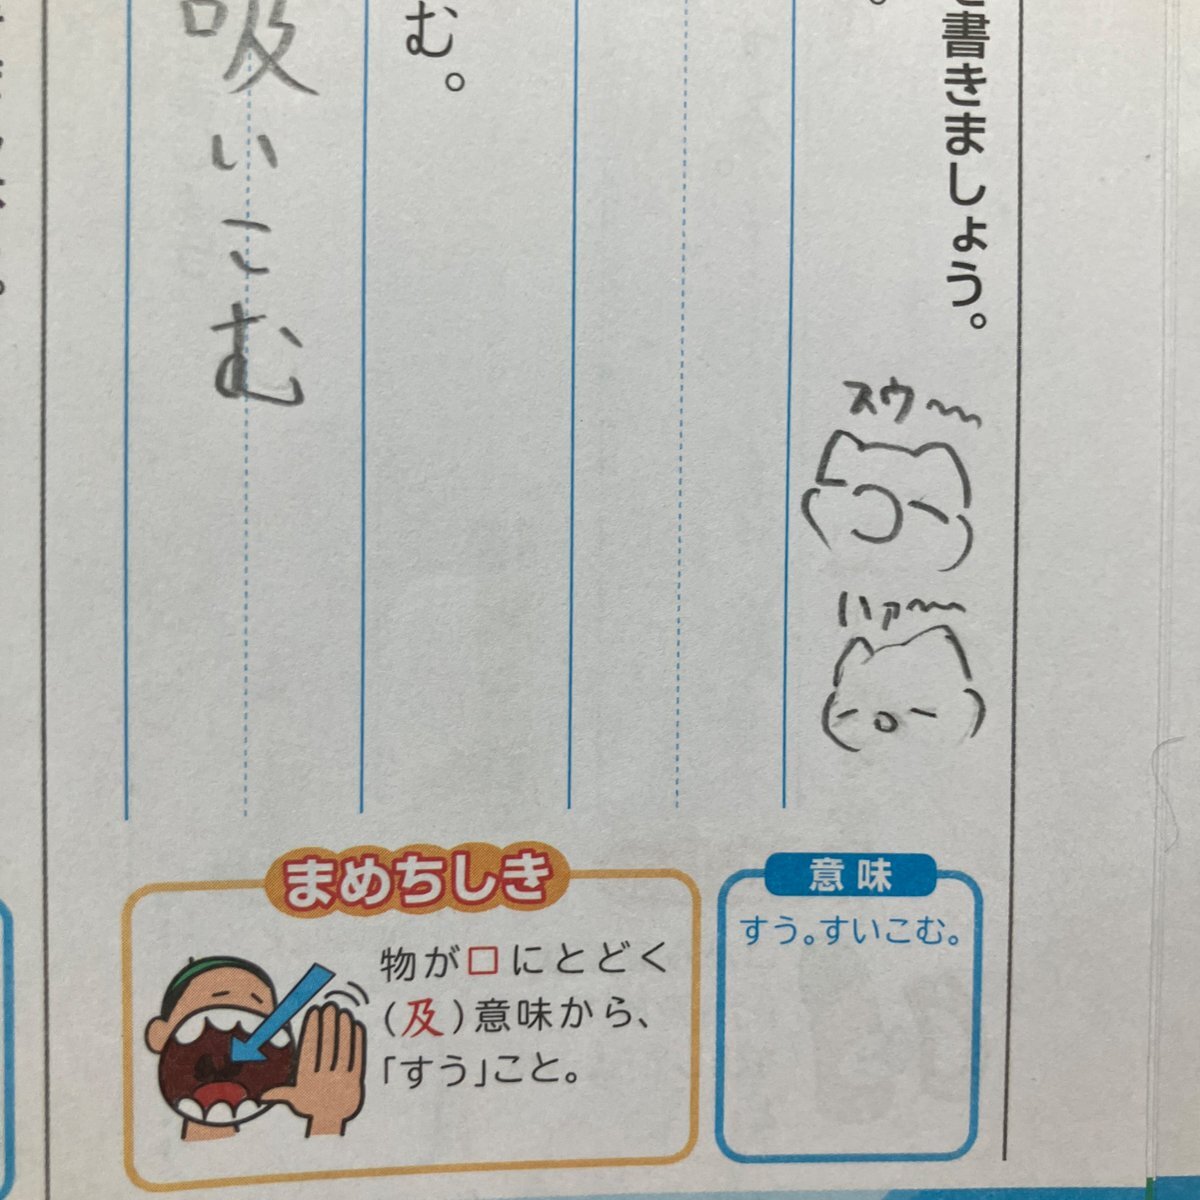 書きましょう。
む。
吸いこむ
スウ〜〜
ハァ〜〜
意味
すう。すいこむ。
まめちしき
物が口にとどく
(及)意味から、
「すう」こと。